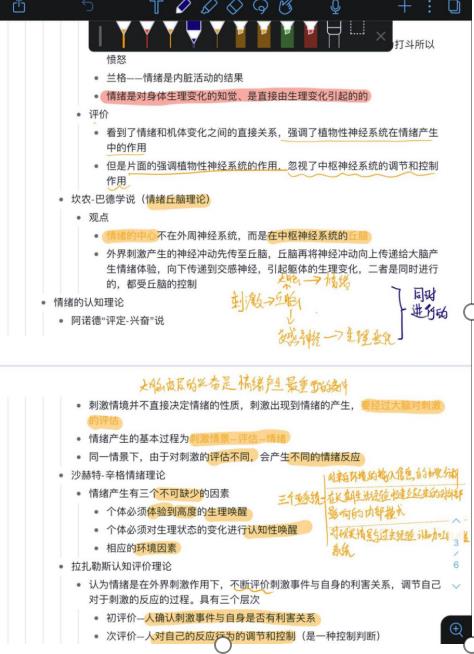 打斗所以
愤怒
兰格——情绪是内脏活动的结果
情绪是对身体生理变化的知觉、是直接由生理变化引起的的
评价
看到了情绪和机体变化之间的直接关系，强调了植物性神经系统在情绪产生
中的作用
但是片面的强调植物性神经系统的作用，忽视了中枢神经系统的调节和控制
作用
坎农-巴德学说（情绪丘脑理论）
观点
情绪的中心不在外周神经系统，而是在中枢神经系统的丘脑
外界刺激产生的神经冲动先传至丘脑，丘脑再将神经冲动向上传递给大脑产
生情绪体验，向下传递到交感神经，引起躯体的生理变化，二者是同时进行
的，都受丘脑的控制
大脑→情绪
刺激→丘脑
交感神经→生理变化
同时
进行的
情绪的认知理论
阿诺德“评定-兴奋”说
大脑皮层的兴奋是情绪产生最重要的条件
刺激情境并不直接决定情绪的性质，刺激出现到情绪的产生，要经过大脑对刺激
的评估
情绪产生的基本过程为刺激情景—评估—情绪
同一情景下，由于对刺激的评估不同，会产生不同的情绪反应
沙赫特-辛格情绪理论
情绪产生有三个不可缺少的因素
个体必须体验到高度的生理唤醒
个体必须对生理状态的变化进行认知性唤醒
相应的环境因素
三个亚系统
系统
3
6
拉扎勒斯认知评价理论
认为情绪是在外界刺激作用下，不断评价刺激事件与自身的利害关系，调节自己
对于刺激的反应的过程。具有三个层次
初评价—人确认刺激事件与自身是否有利害关系
次评价—人对自己的反应行为的调节和控制（是一种控制判断）